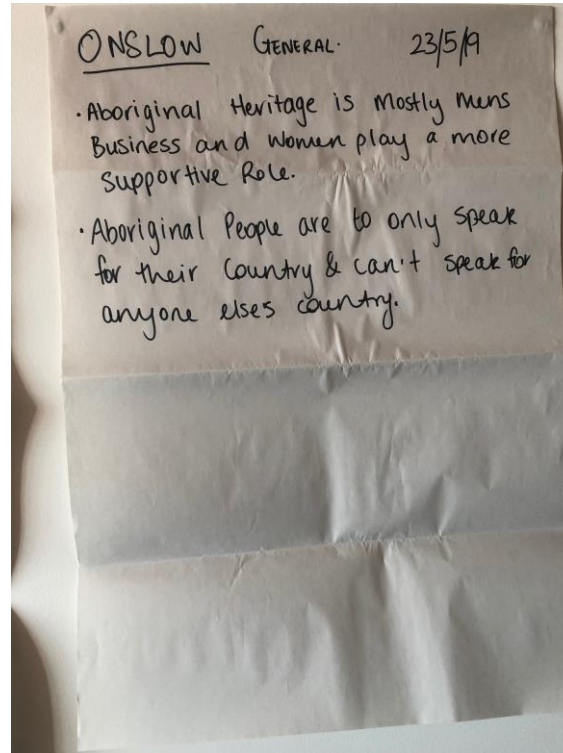 ONSLOW GENERAL. 23/5/19
· Aboriginal Heritage is mostly mens
Business and women play a more
supportive Role.
· Aboriginal People are to only speak
for their Country & can't speak for
anyone elses country.